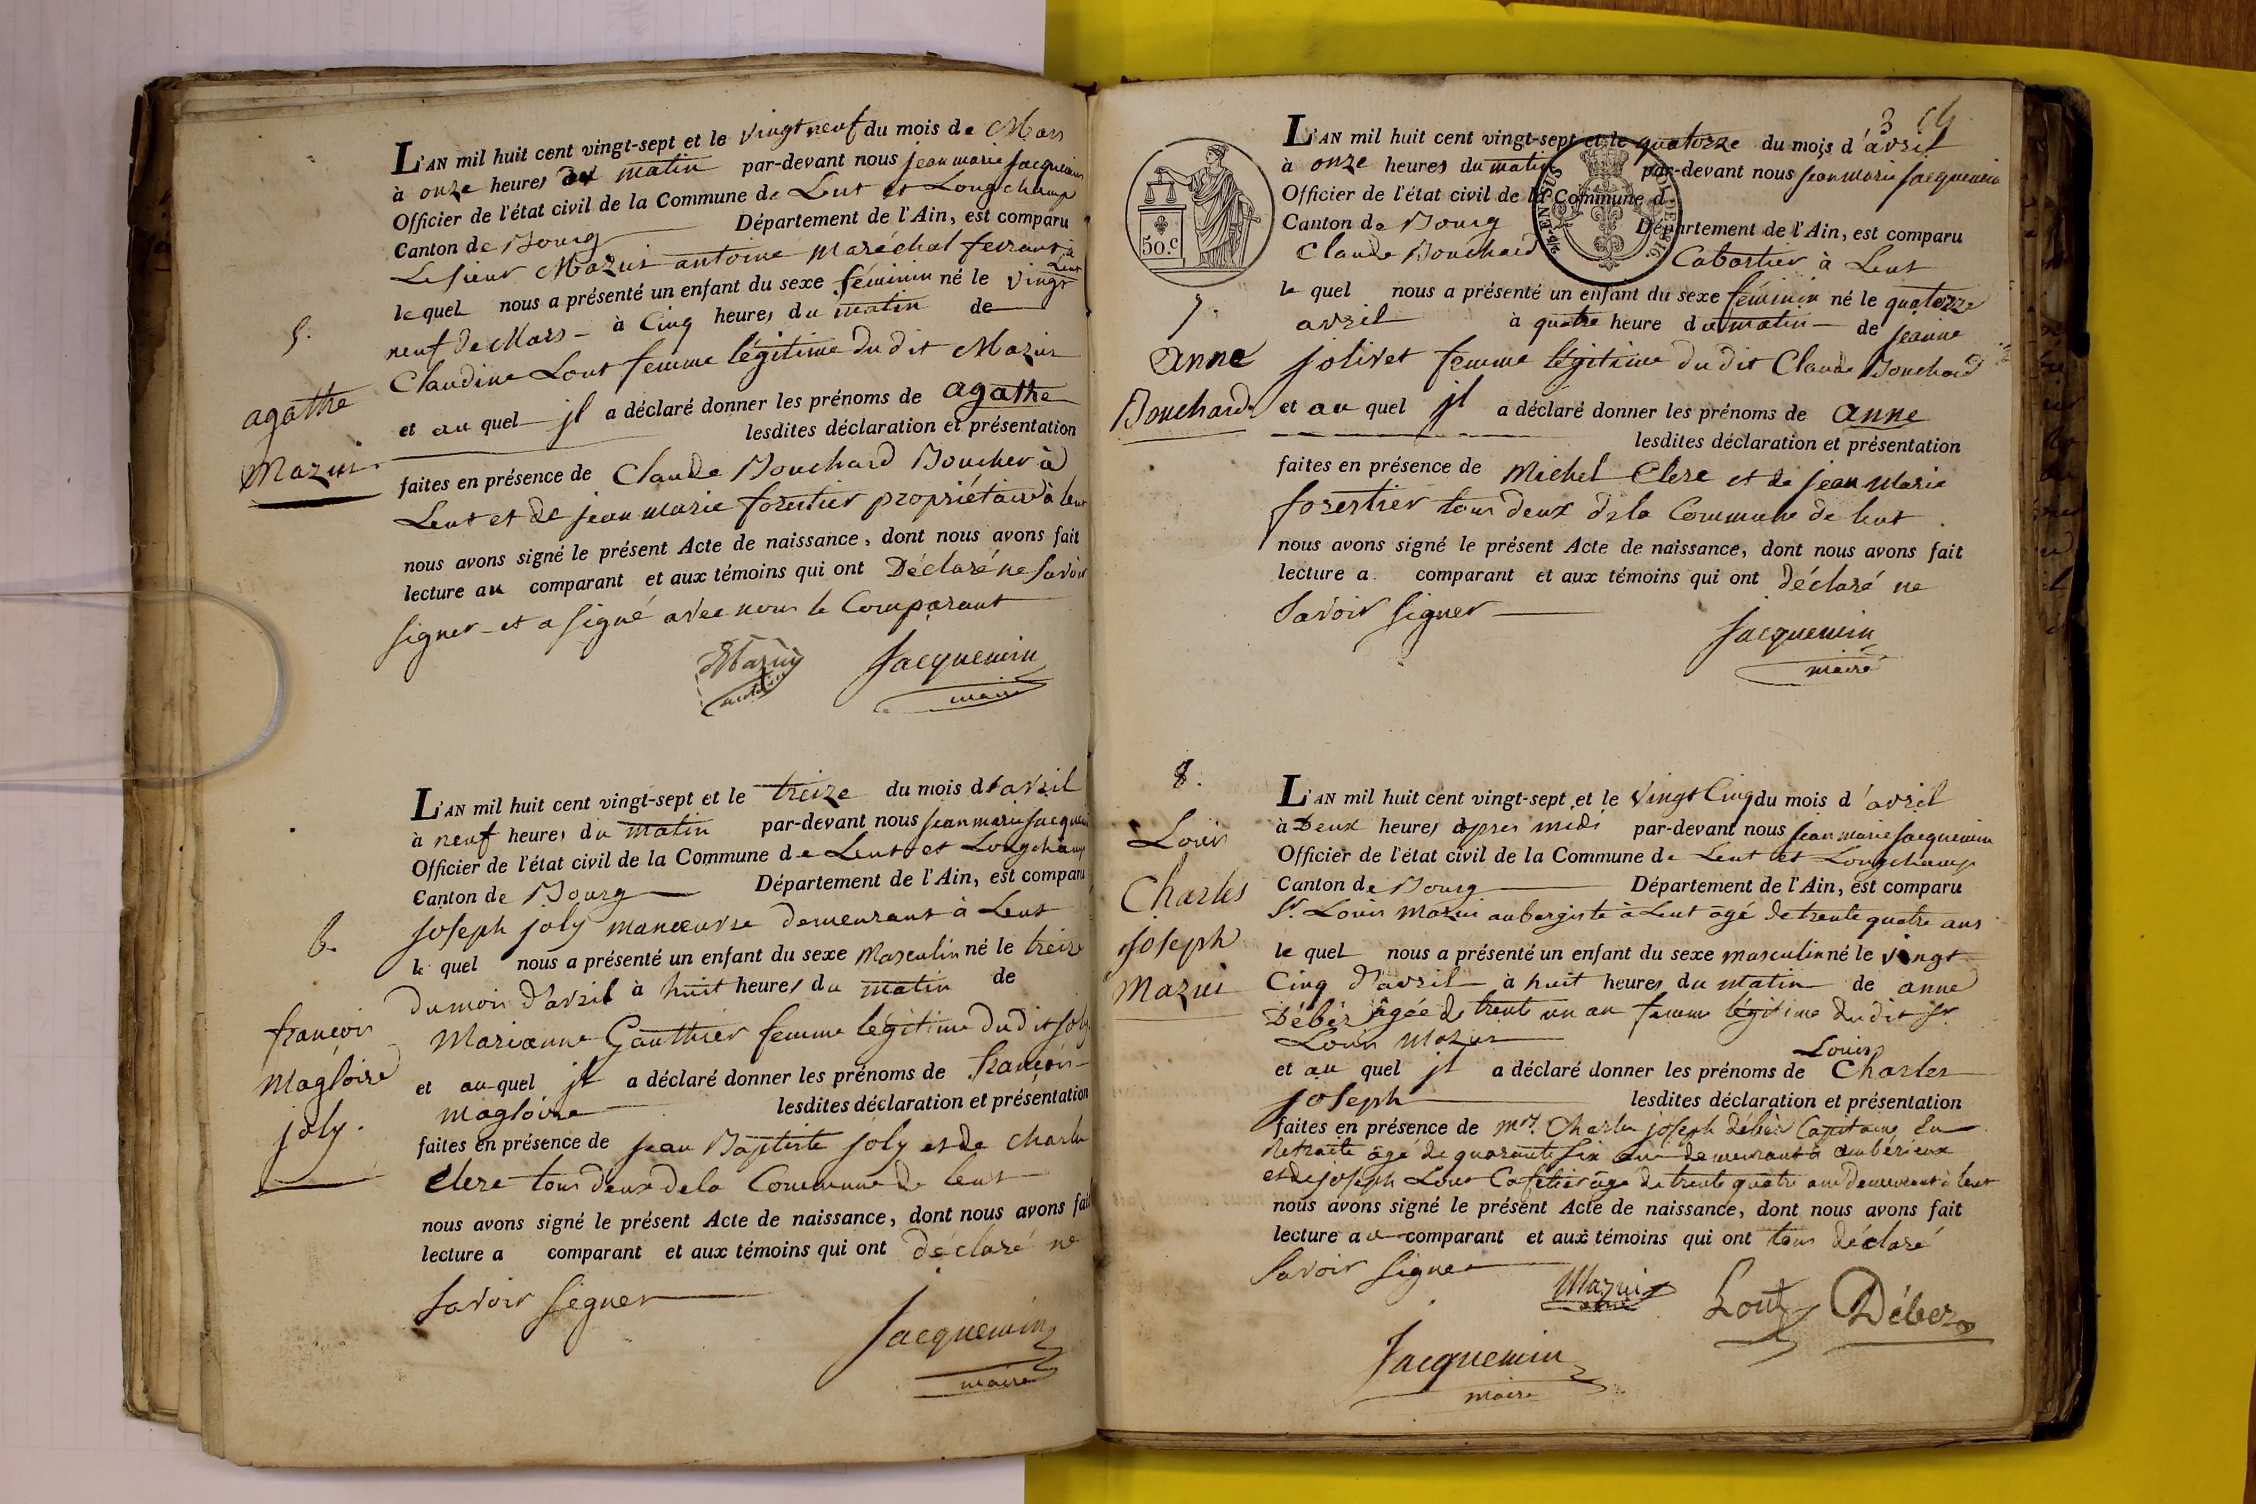 L'AN mil huit cent vingt-sept et le vingt neuf du mois de Mars
à onze heures du matin par-devant nous jean marie jacquemin
Officier de l'état civil de la Commune de Lent et Longchamp
Canton de Bourg Département de l'Ain, est comparu
Le sieur Mazui antoine maréchal ferrant à Lent
lequel nous a présenté un enfant du sexe féminin né le vingt
neuf de Mars à Cinq heures du matin de
Claudine Lout femme légitime du dit Mazui
5.
agathe
Mazui
et au quel jl a déclaré donner les prénoms de agathe
lesdites déclaration et présentation
faites en présence de Claude Bouchard Boucher à
Lent et de jean marie forestier propriétaire à lent
nous avons signé le présent Acte de naissance, dont nous avons fait
lecture au comparant et aux témoins qui ont Déclaré ne savoir
signer et a signé avec nous le Comparant
Mazui
antoine
Jacquemin
maire
L'AN mil huit cent vingt-sept et le treize du mois d'avril
à neuf heures du matin par-devant nous jean marie jacquemin
Officier de l'état civil de la Commune de Lent et Longchamp
Canton de Bourg Département de l'Ain, est comparu
joseph joly manoeuvre demeurant à Lent
le quel nous a présenté un enfant du sexe Masculin né le treize
du mois d'avril à huit heures du matin de
Marianne Gauthier femme légitime du dit joly
6.
françois
magloire
joly.
et au quel jl a déclaré donner les prénoms de françois
magloire lesdites déclaration et présentation
faites en présence de jean Baptiste joly et de charles
clere tous deux de la Commune de lent
nous avons signé le présent Acte de naissance, dont nous avons fait
lecture a comparant et aux témoins qui ont déclaré ne
savoir signer
Jacquemin
maire
3
L'AN mil huit cent vingt-sept et le quatorze du mois d'avril
à onze heures du matin par-devant nous jean marie jacquemin
Officier de l'état civil de la Commune d
Canton de Bourg Département de l'Ain, est comparu
50.c
Claude Bouchard Cabartier à Lent
le quel nous a présenté un enfant du sexe féminin né le quatorze
avril à quatre heure du matin de jeanne
jolivet femme légitime du dit Claude Bouchard
7.
anne
Bouchard
et au quel jl a déclaré donner les prénoms de anne
lesdites déclaration et présentation
faites en présence de Michel Clere et de jean Marie
forestier tous deux de la Commune de lent
nous avons signé le présent Acte de naissance, dont nous avons fait
lecture a comparant et aux témoins qui ont déclaré ne
savoir signer
Jacquemin
maire
8.
Louis
Charles
joseph
Mazui
L'AN mil huit cent vingt-sept et le vingt Cinq du mois d'avril
à Deux heures apres midi par-devant nous jean marie jacquemin
Officier de l'état civil de la Commune de Lent et Longchamp
Canton de Bourg Département de l'Ain, est comparu
Sr. Louis Mazui aubergiste à Lent âgé de trente quatre ans
le quel nous a présenté un enfant du sexe masculin né le vingt
Cinq d'avril à huit heures du matin de anne
Débèr âgée de trente un an femme légitime du dit Sr
Louis Mazui
et au quel jl a déclaré donner les prénoms de Louis Charles
joseph lesdites déclaration et présentation
faites en présence de Mr. Charles joseph débèr Capitaine en
Retraite âgé de quarante six ans demeurant à ambérieux
et de joseph Lout Cafetier âge de trente quatre ans demeurant à lent
nous avons signé le présent Acte de naissance, dont nous avons fait
lecture au comparant et aux témoins qui ont tous déclaré
savoir signer
Mazui
Lout
Déber
Jacquemin
maire